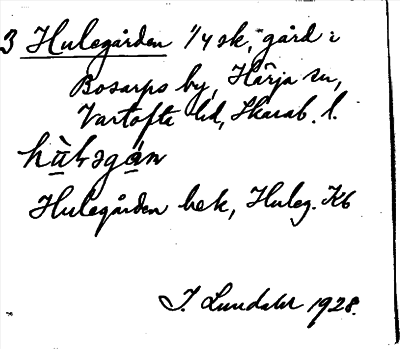 3 Hulegården 1/4 sk, gård i
Bosarps by, Härja sn,
Vartofta hd, Skarab. l.
Hulegården bek, Huleg. Kb
J. Lundahl 1928.